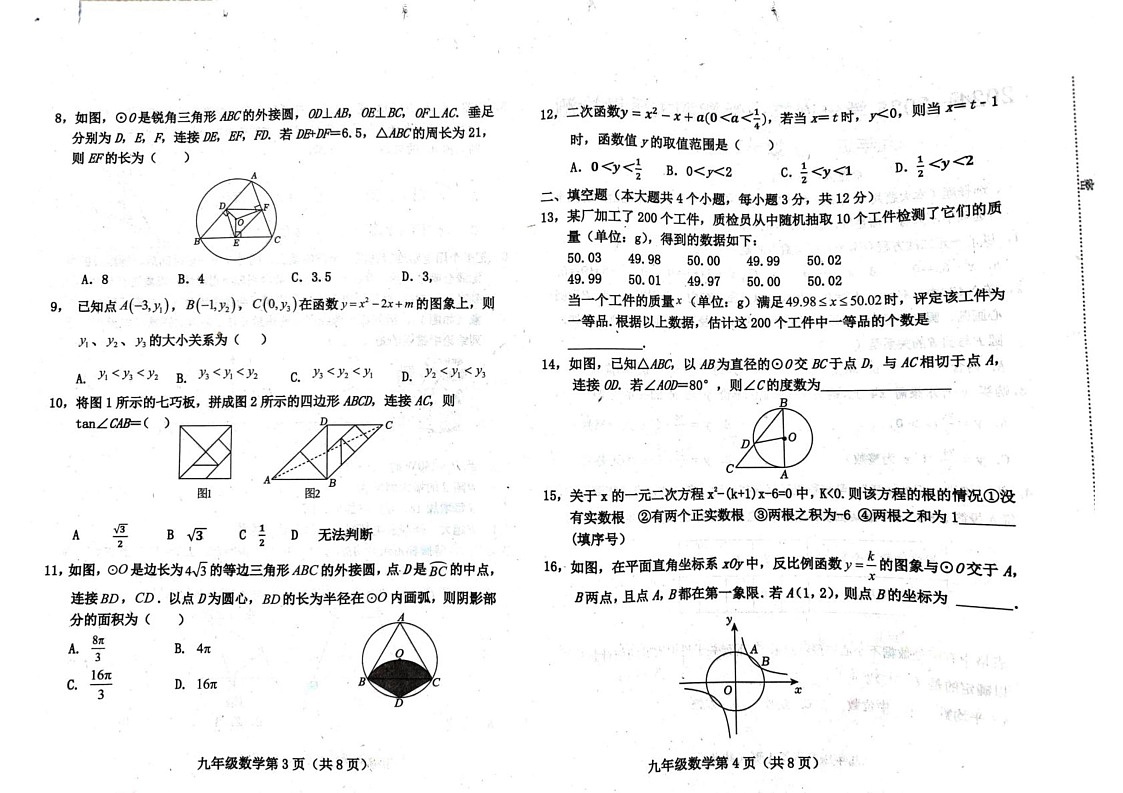 8，如图，⊙O是锐角三角形ABC的外接圆，OD⊥AB，OE⊥BC，OF⊥AC. 垂足
分别为D，E，F，连接DE，EF，FD. 若DE+DF=6.5，△ABC的周长为21，
则EF的长为（　　）
A
D
F
O
B
E
C
A. 8　B. 4　C. 3.5　D. 3,
9， 已知点A(-3,y₁)，B(-1,y₂)，C(0,y₃)在函数y=x²-2x+m的图象上，则
y₁、y₂、y₃的大小关系为（　　）
A. y₁<y₃<y₂　B. y₃<y₁<y₂　C. y₃<y₂<y₁　D. y₂<y₁<y₃
10，将图1所示的七巧板，拼成图2所示的四边形ABCD，连接AC，则
tan∠CAB=(　　)
D
C
A
B
图1　图2
A　√3/2　B　√3　C　1/2　D　无法判断
11，如图，⊙O是边长为4√3的等边三角形ABC的外接圆，点D是BC⌒的中点，
连接BD，CD．以点D为圆心，BD的长为半径在⊙O内画弧，则阴影部
分的面积为（　　）
A. 8π/3　B. 4π
C. 16π/3　D. 16π
A
O
B
C
D
九年级数学第3页（共8页）
12，二次函数y=x²-x+a(0<a<1/4)，若当x=t时，y<0，则当x=t-1
时，函数值y的取值范围是（　　）
A. 0<y<1/2　B. 0<y<2　C. 1/2<y<1　D. 1/2<y<2
二、填空题（本大题共4个小题，每小题3分，共12分）
13，某厂加工了200个工件，质检员从中随机抽取10个工件检测了它们的质
量（单位：g），得到的数据如下：
50.03　49.98　50.00　49.99　50.02
49.99　50.01　49.97　50.00　50.02
当一个工件的质量x（单位：g）满足49.98≤x≤50.02时，评定该工件为
一等品.根据以上数据，估计这200个工件中一等品的个数是
________.
14，如图，已知△ABC，以AB为直径的⊙O交BC于点D，与AC相切于点A，
连接OD．若∠AOD=80°，则∠C的度数为________
B
D
O
C
A
15，关于x的一元二次方程x²-(k+1)x-6=0中，K<0.则该方程的根的情况①没
有实数根　②有两个正实数根　③两根之积为-6　④两根之和为1________
(填序号)
16，如图，在平面直角坐标系xOy中，反比例函数y=k/x的图象与⊙O交于A，
B两点，且点A，B都在第一象限．若A(1，2)，则点B的坐标为________.
y
A
B
O
x
九年级数学第4页（共8页）